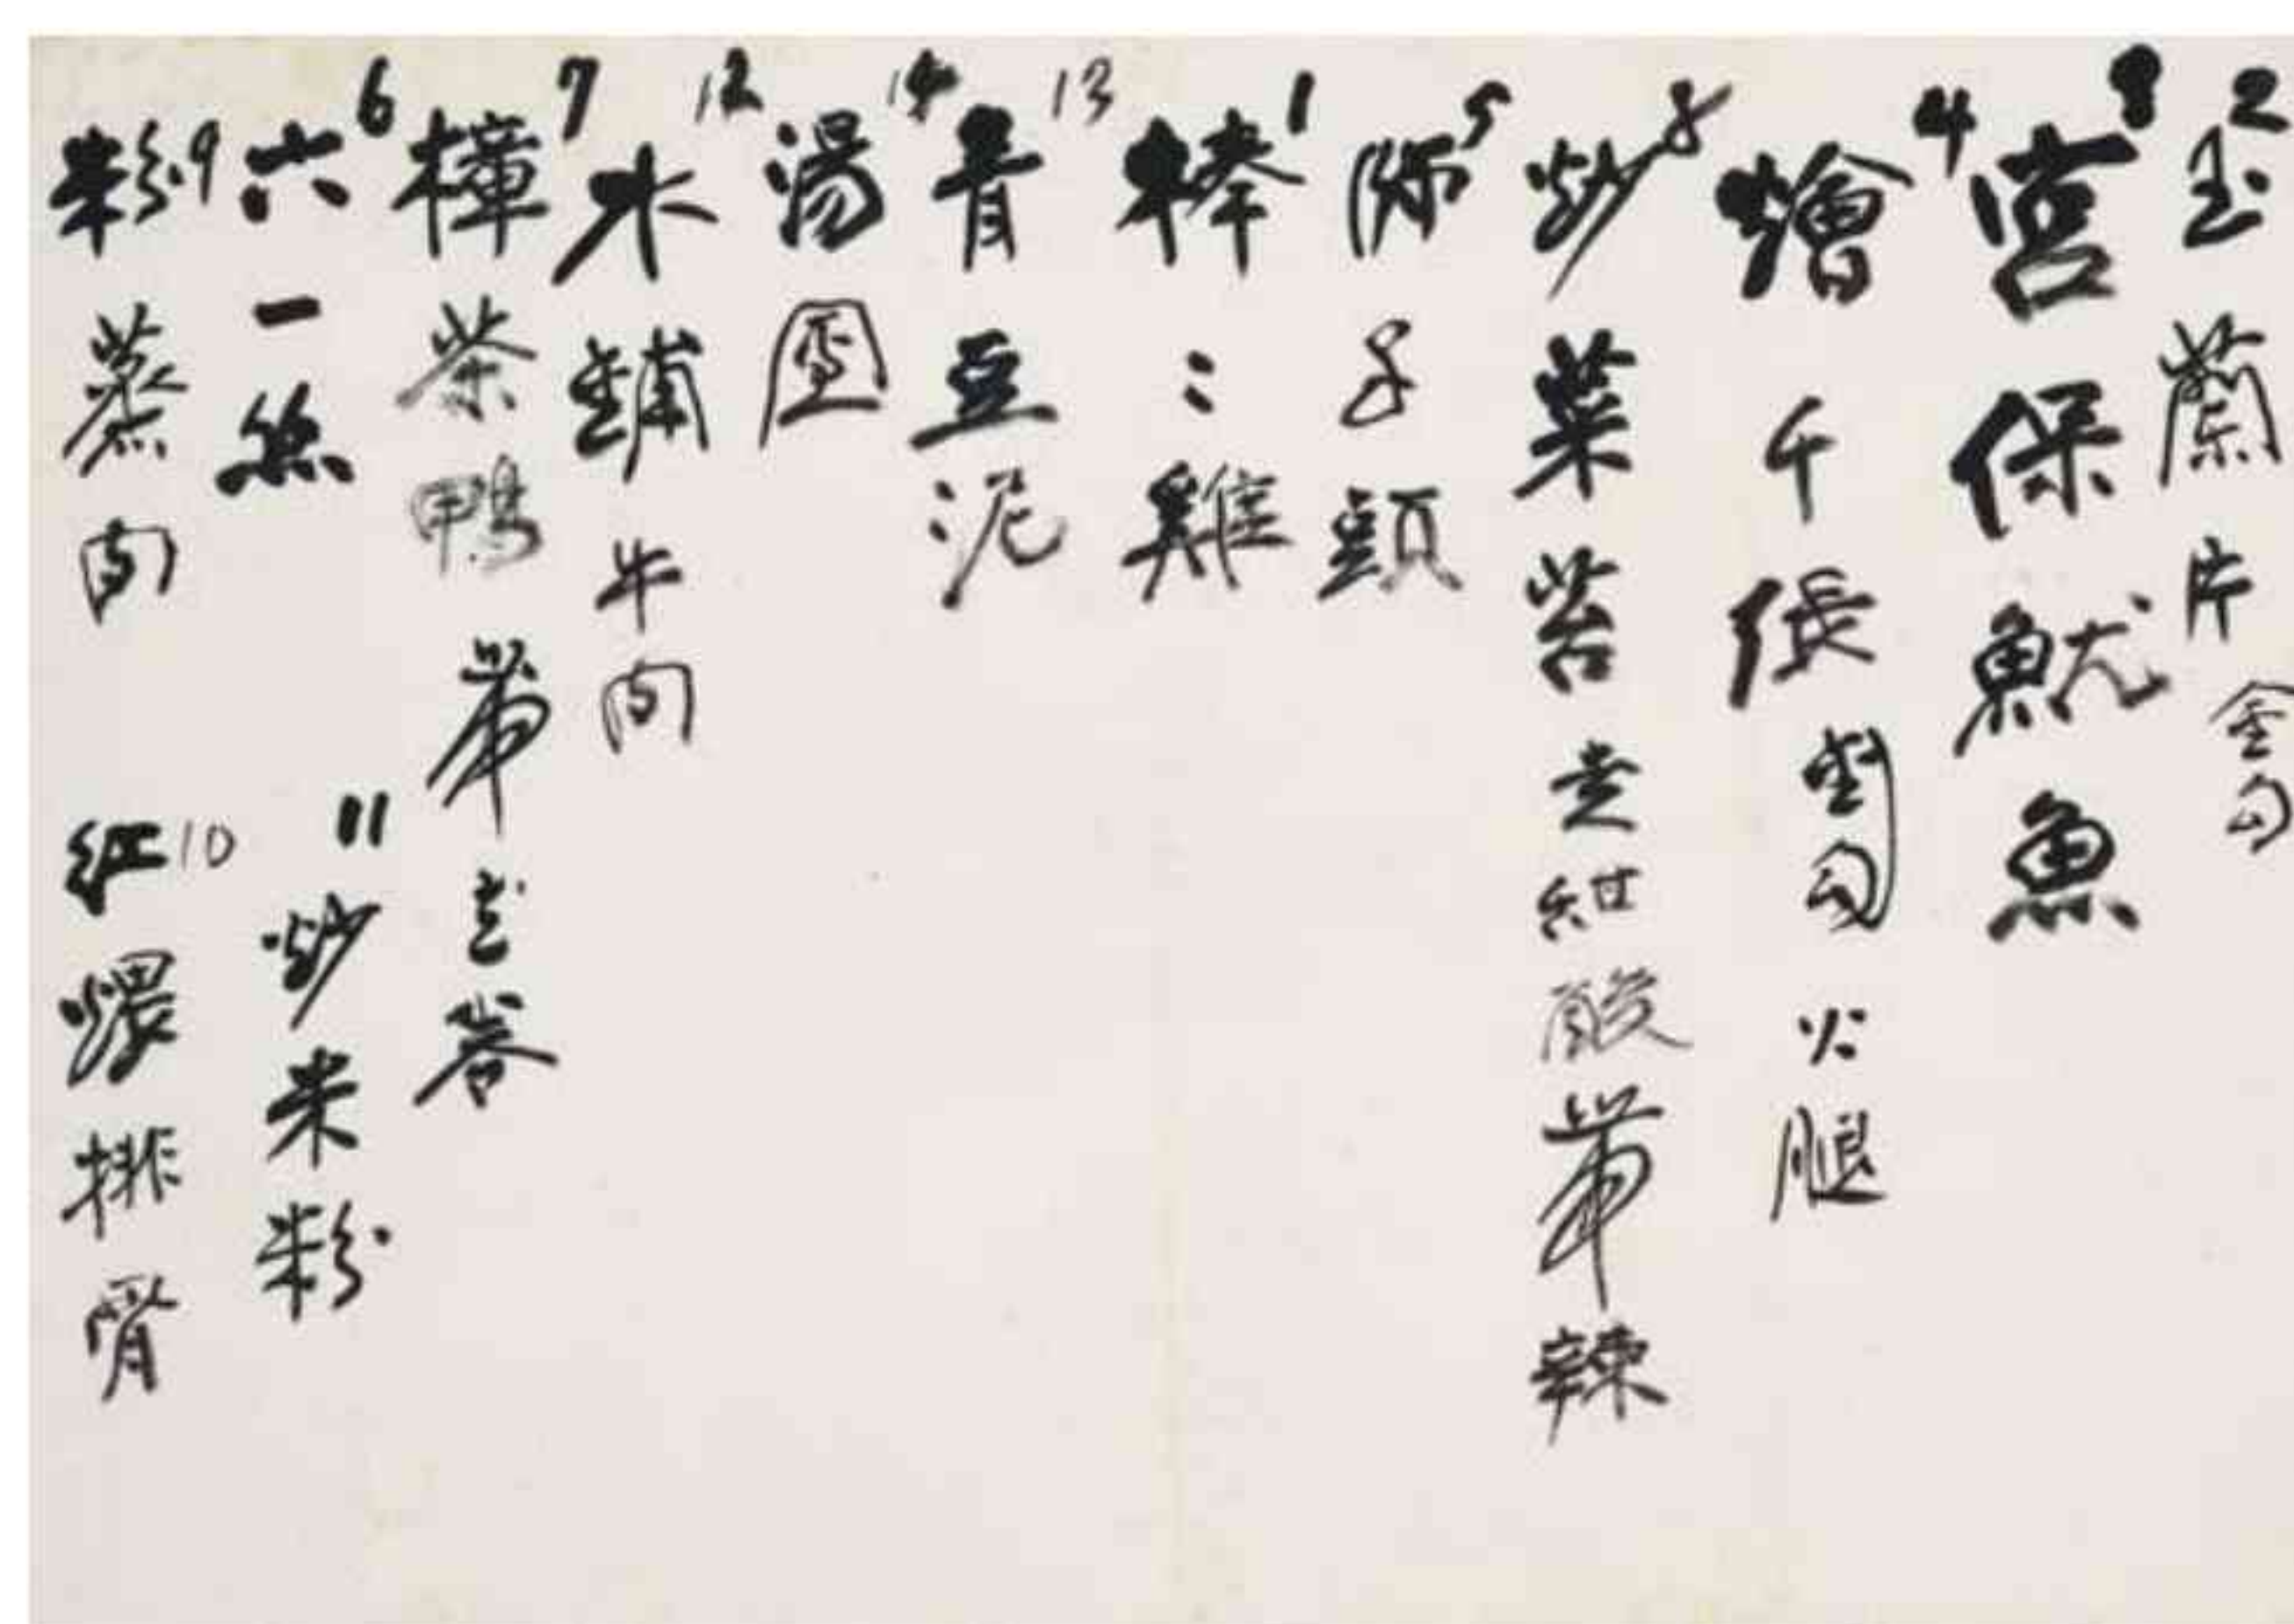 2 玉蘭片 金勾
3 宮保魷魚
4 燴千張 火腿
8 炒菜苔 甜酸帶辣
5 獅子頭
1 棒：雞
13 青豆泥
14 湯圓
12 水鋪牛肉
7 樟茶鴨 帶
6 六一絲
11 炒米粉
9 粉蒸肉
10 紅煨排骨